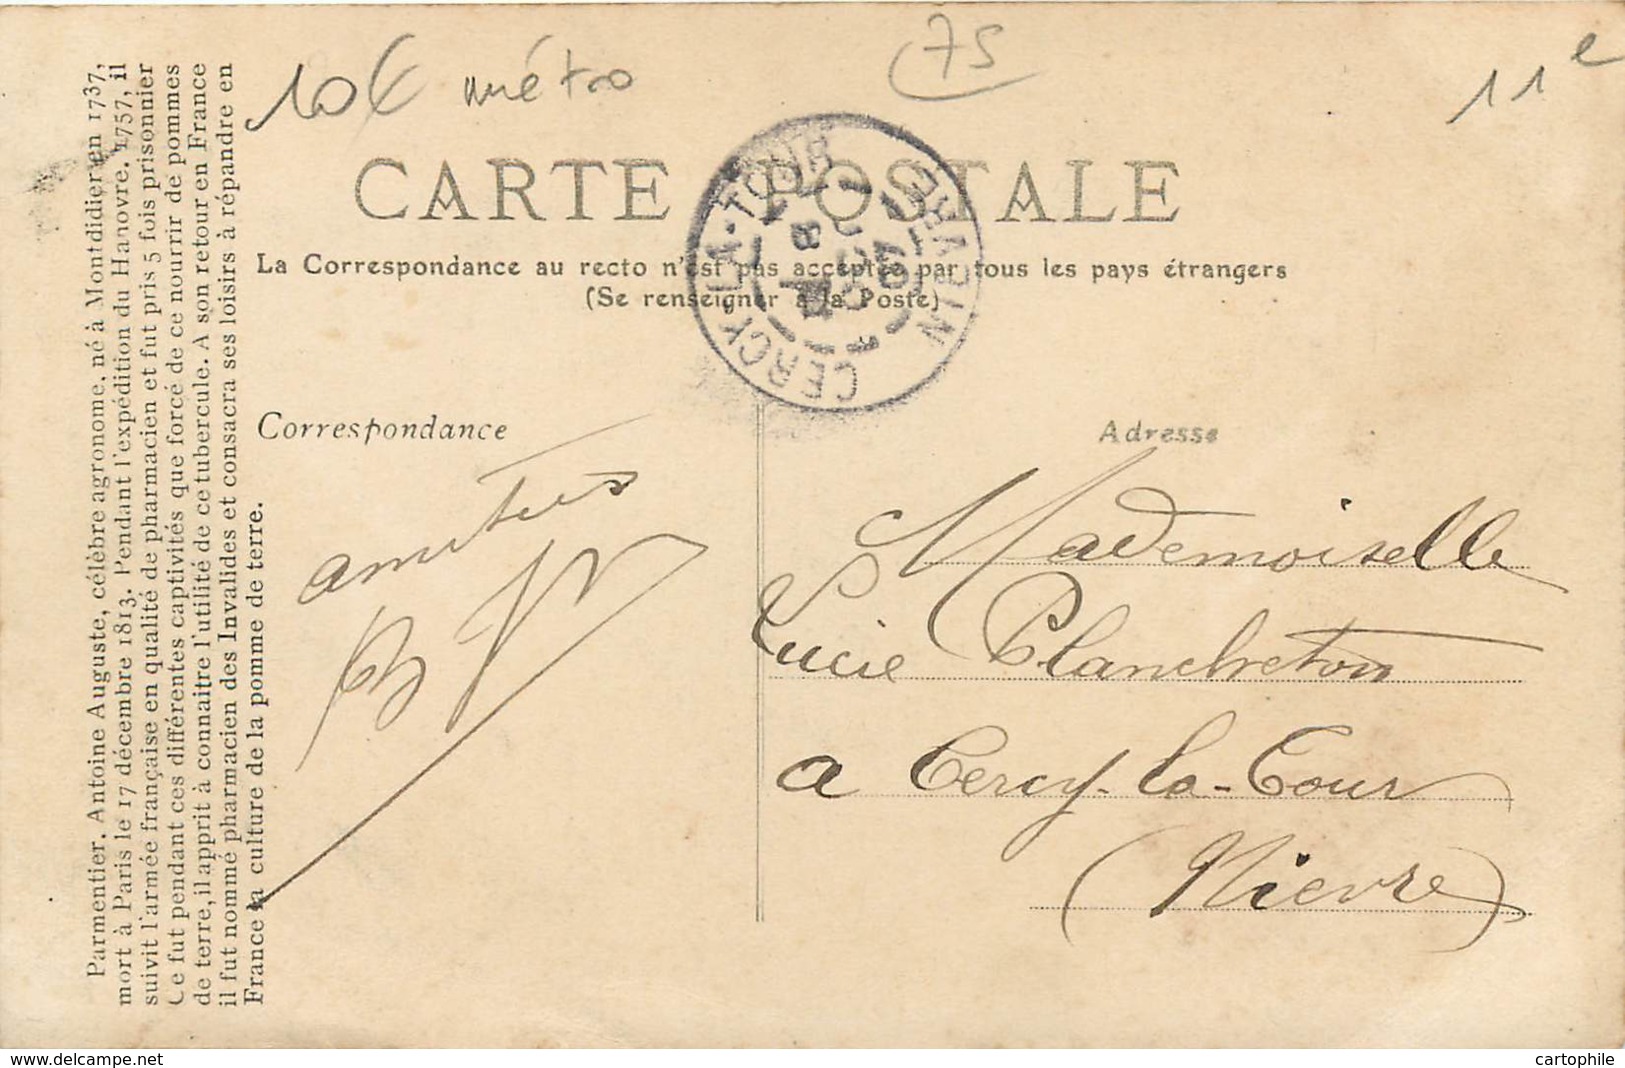 10€ métro
75
11e
CARTE POSTALE
La Correspondance au recto n'est pas acceptée par tous les pays étrangers
(Se renseigner à la Poste)
CERCY-LA-TOUR
Correspondance
Adresse
amitiés
Mademoiselle
Lucie Plancheton
a Cercy-la-Tour
(Nièvre)
Parmentier. Antoine Auguste, célèbre agronome, né à Montdidier en 1737,
mort à Paris le 17 décembre 1813. Pendant l'expédition du Hanovre. 1757, il
suivit l'armée française en qualité de pharmacien et fut pris 5 fois prisonnier
Ce fut pendant ces différentes captivités que forcé de ce nourrir de pommes
de terre, il apprit à connaitre l'utilité de ce tubercule. A son retour en France
il fut nommé pharmacien des Invalides et consacra ses loisirs à répandre en
France la culture de la pomme de terre.
www.delcampe.net
cartophile